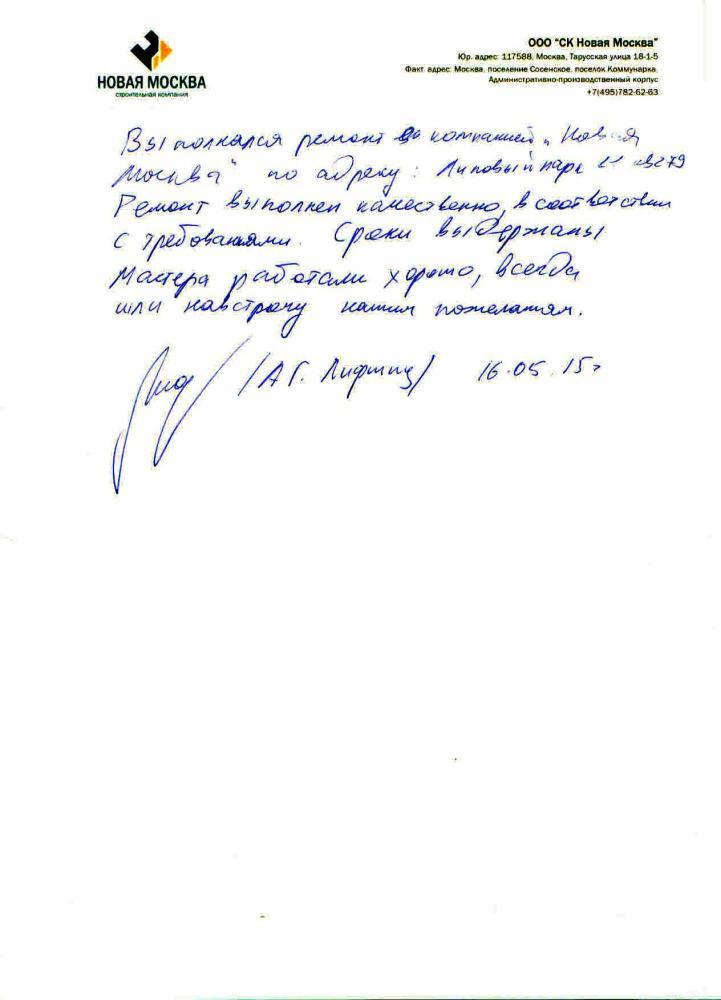 НОВАЯ МОСКВА
строительная компания
ООО "СК Новая Москва"
Юр. адрес: 117588, Москва, Тарусская улица 18-1-5
Факт. адрес: Москва, поселение Сосенское, поселок Коммунарка,
Административно-производственный корпус
+7(495)782-62-63
Выполнялся ремонт компанией „Новая
Москва" по адресу: Липовый парк
Ремонт выполнен качественно, в соответствии
с требованиями. Сроки выдержаны
Мастера работали хорошо, всегда
шли навстречу нашим пожеланиям.
/А Г. Лифшиц/ 16.05.15г